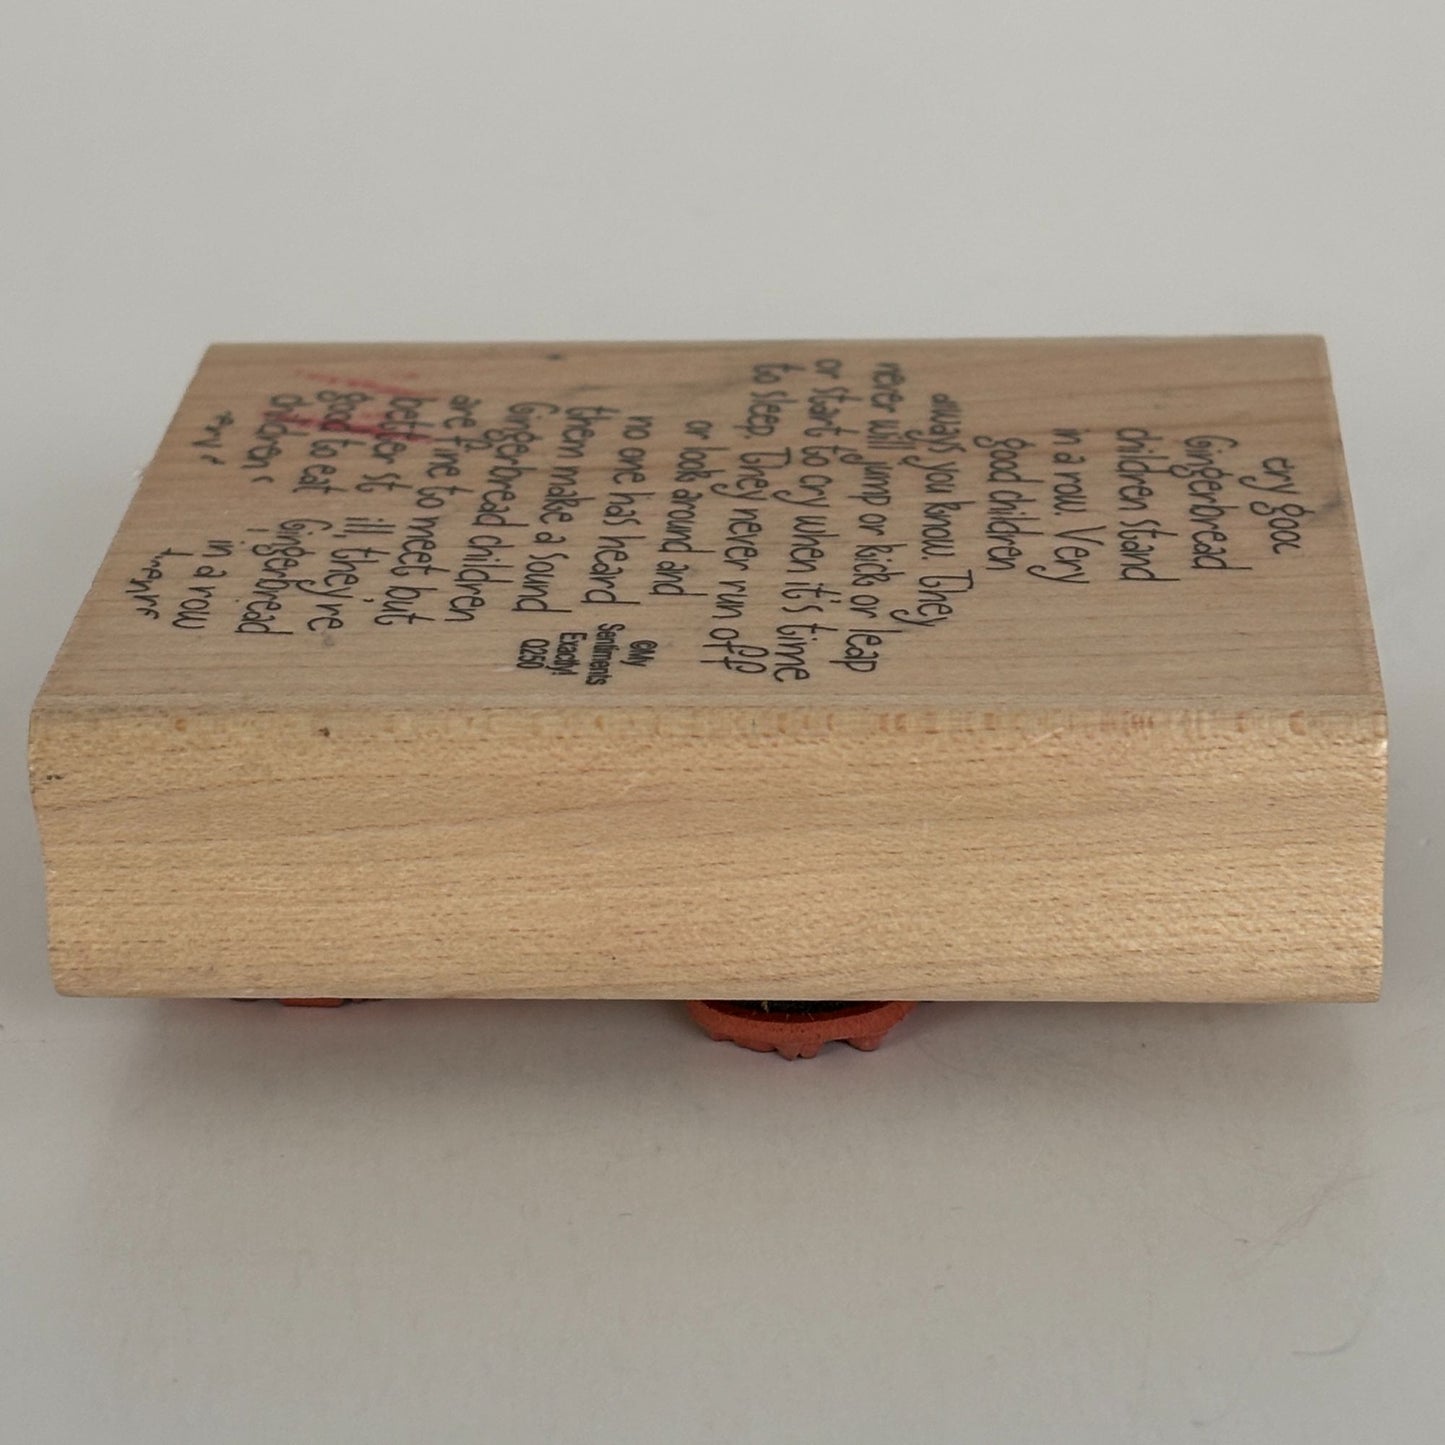 ery gooc
Gingerbread
children stand
in a row. Very
good children
always you know. They
never will jump or kick or leap
or start to cry when it's time
to sleep. They never run off
or look around and
no one has heard
them make a sound
Gingerbread children
are fine to meet but
better st ill, they're
good to eat Gingerbread
children, in a row
©My
Sentiments
Exactly!
Q250